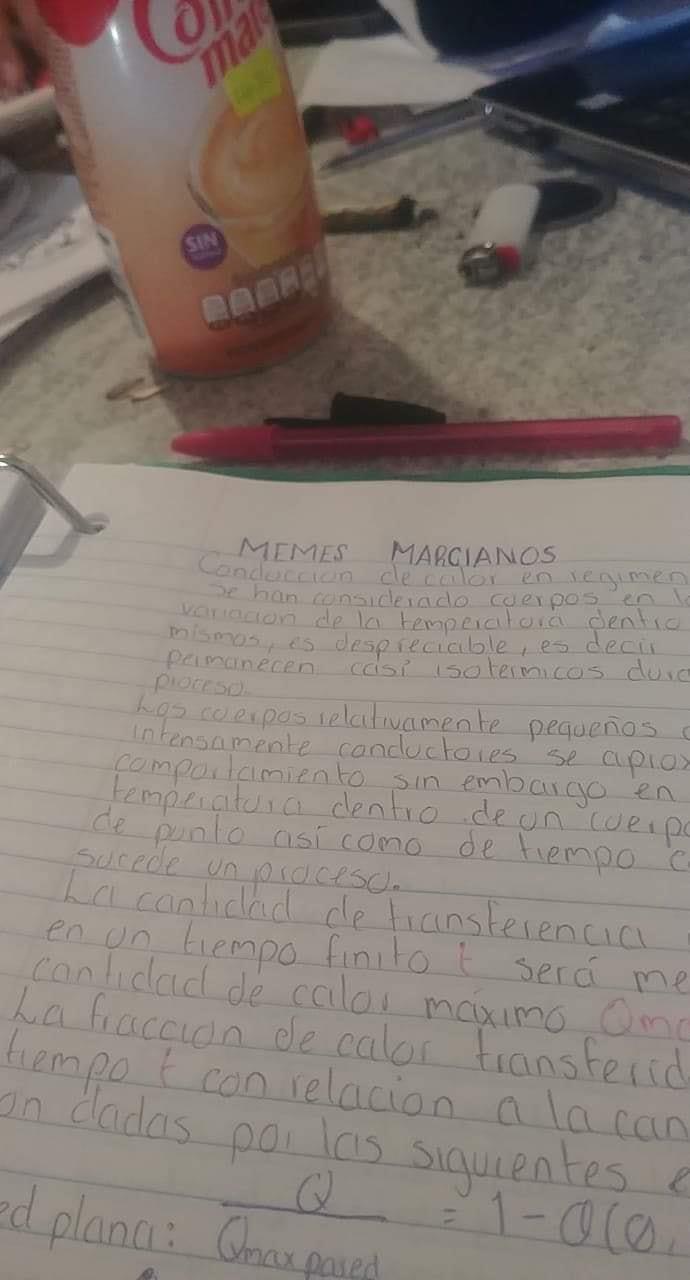 Coffee
mate
SIN
MEMES MARCIANOS
Conduccion de calor en regimen
Se han considerado cuerpos en
variacion de la temperatura dentro
mismos, es despreciable, es decir
permanecen casi isotermicos
proceso.
Los cuerpos relativamente pequeños
intensamente conductores se
comportamiento sin embargo en
temperatura dentro de un
de punto así como de tiempo
sucede un proceso.
La cantidad de transferencia
en un tiempo finito t será
cantidad de calor máximo
La fraccion de calor
tiempo t con relacion a la
dadas por las siguientes
plana: Q / Qmax pared = 1 -